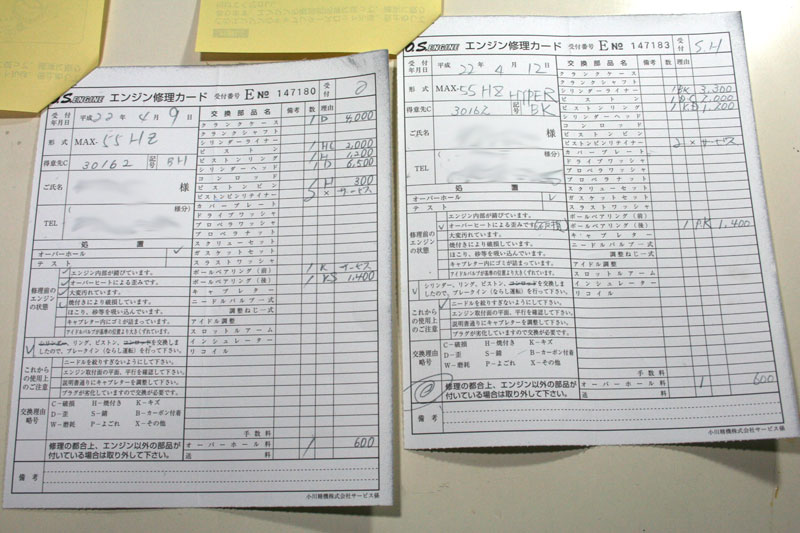 O.S. ENGINE エンジン修理カード 受付番号 E No 147180
受付年月日 平成 22 年 4 月 9 日
形式 MAX-55HZ
得意先C 30162 記号 BH
ご氏名 様
( 様分)
TEL
処置
オーバーホール ✓
テスト
修理前のエンジンの状態
エンジン内部が錆びています。
オーバーヒートによる歪みです。
大変汚れています。
焼付きにより破損しています。
ほこり、砂等を吸い込んでいます。
キャブレター内にゴミが詰まっています。
アイドルバルブが基準の位置より大きくずれています。
シリンダー、リング、ピストン、コンロッドを交換しましたので、ブレークイン(ならし運転)を行って下さい。
これからの使用上のご注意
ニードルを絞りすぎないようにして下さい。
エンジン取付面の平面、平行を確認して下さい。
説明書通りにキャブレターを調整して下さい。
プラグが劣化していますので交換が必要です。
交換理由略号
C−破損 H−焼付き K−キズ
D−歪 S−錆 B−カーボン付着
W−磨耗 P−よごれ X−その他
修理の都合上、エンジン以外の部品が付いている場合は取り外して下さい。
備考
交換部品名 備考 数 理由
クランクケース 1 D 4,000
クランクシャフト
シリンダーライナー
ピストン 1 HC 2,000
ピストンリング 1 H 1,200
シリンダーヘッド 1 D 6,500
コンロッド
ピストンピン H 300
ピストンピンリテイナー × サービス
カバープレート
ドライブワッシャ
プロペラワッシャ
プロペラナット
スクリューセット
ガスケットセット
スラストワッシャ
ボールベアリング(前) 1 K サービス
ボールベアリング(後) 1 KS 1,400
キャブレター
ニードルバルブ一式
調整ねじ一式
アイドル調整
スロットルアーム
インシュレーター
リコイル
手数料
オーバーホール料 1 600
送料
小川精機株式会社サービス係
O.S. ENGINE エンジン修理カード 受付番号 E No 147183 受付 S.H
受付年月日 平成 22 年 4 月 12 日
形式 MAX-55HZ HYPER
得意先C 30162 記号 BK
ご氏名 様
( 様分)
TEL
処置
オーバーホール ✓
テスト
修理前のエンジンの状態
エンジン内部が錆びています。
オーバーヒートによる歪みです。
大変汚れています。
焼付きにより破損しています。
ほこり、砂等を吸い込んでいます。
キャブレター内にゴミが詰まっています。
アイドルバルブが基準の位置より大きくずれています。
シリンダー、リング、ピストン、コンロッドを交換しましたので、ブレークイン(ならし運転)を行って下さい。
これからの使用上のご注意
ニードルを絞りすぎないようにして下さい。
エンジン取付面の平面、平行を確認して下さい。
説明書通りにキャブレターを調整して下さい。
プラグが劣化していますので交換が必要です。
交換理由略号
C−破損 H−焼付き K−キズ
D−歪 S−錆 B−カーボン付着
W−磨耗 P−よごれ X−その他
修理の都合上、エンジン以外の部品が付いている場合は取り外して下さい。
備考
交換部品名 備考 数 理由
クランクケース
クランクシャフト
シリンダーライナー 1 BK 3,300
ピストン 1 2,000
ピストンリング 1 KD 1,200
シリンダーヘッド
コンロッド
ピストンピン
ピストンピンリテイナー 2 × サービス
カバープレート
ドライブワッシャ
プロペラワッシャ
プロペラナット
スクリューセット
ガスケットセット
スラストワッシャ
ボールベアリング(前)
ボールベアリング(後) 1 PK 1,400
キャブレター
ニードルバルブ一式
調整ねじ一式
アイドル調整
スロットルアーム
インシュレーター
リコイル
手数料
オーバーホール料 1 600
送料
小川精機株式会社サービス係